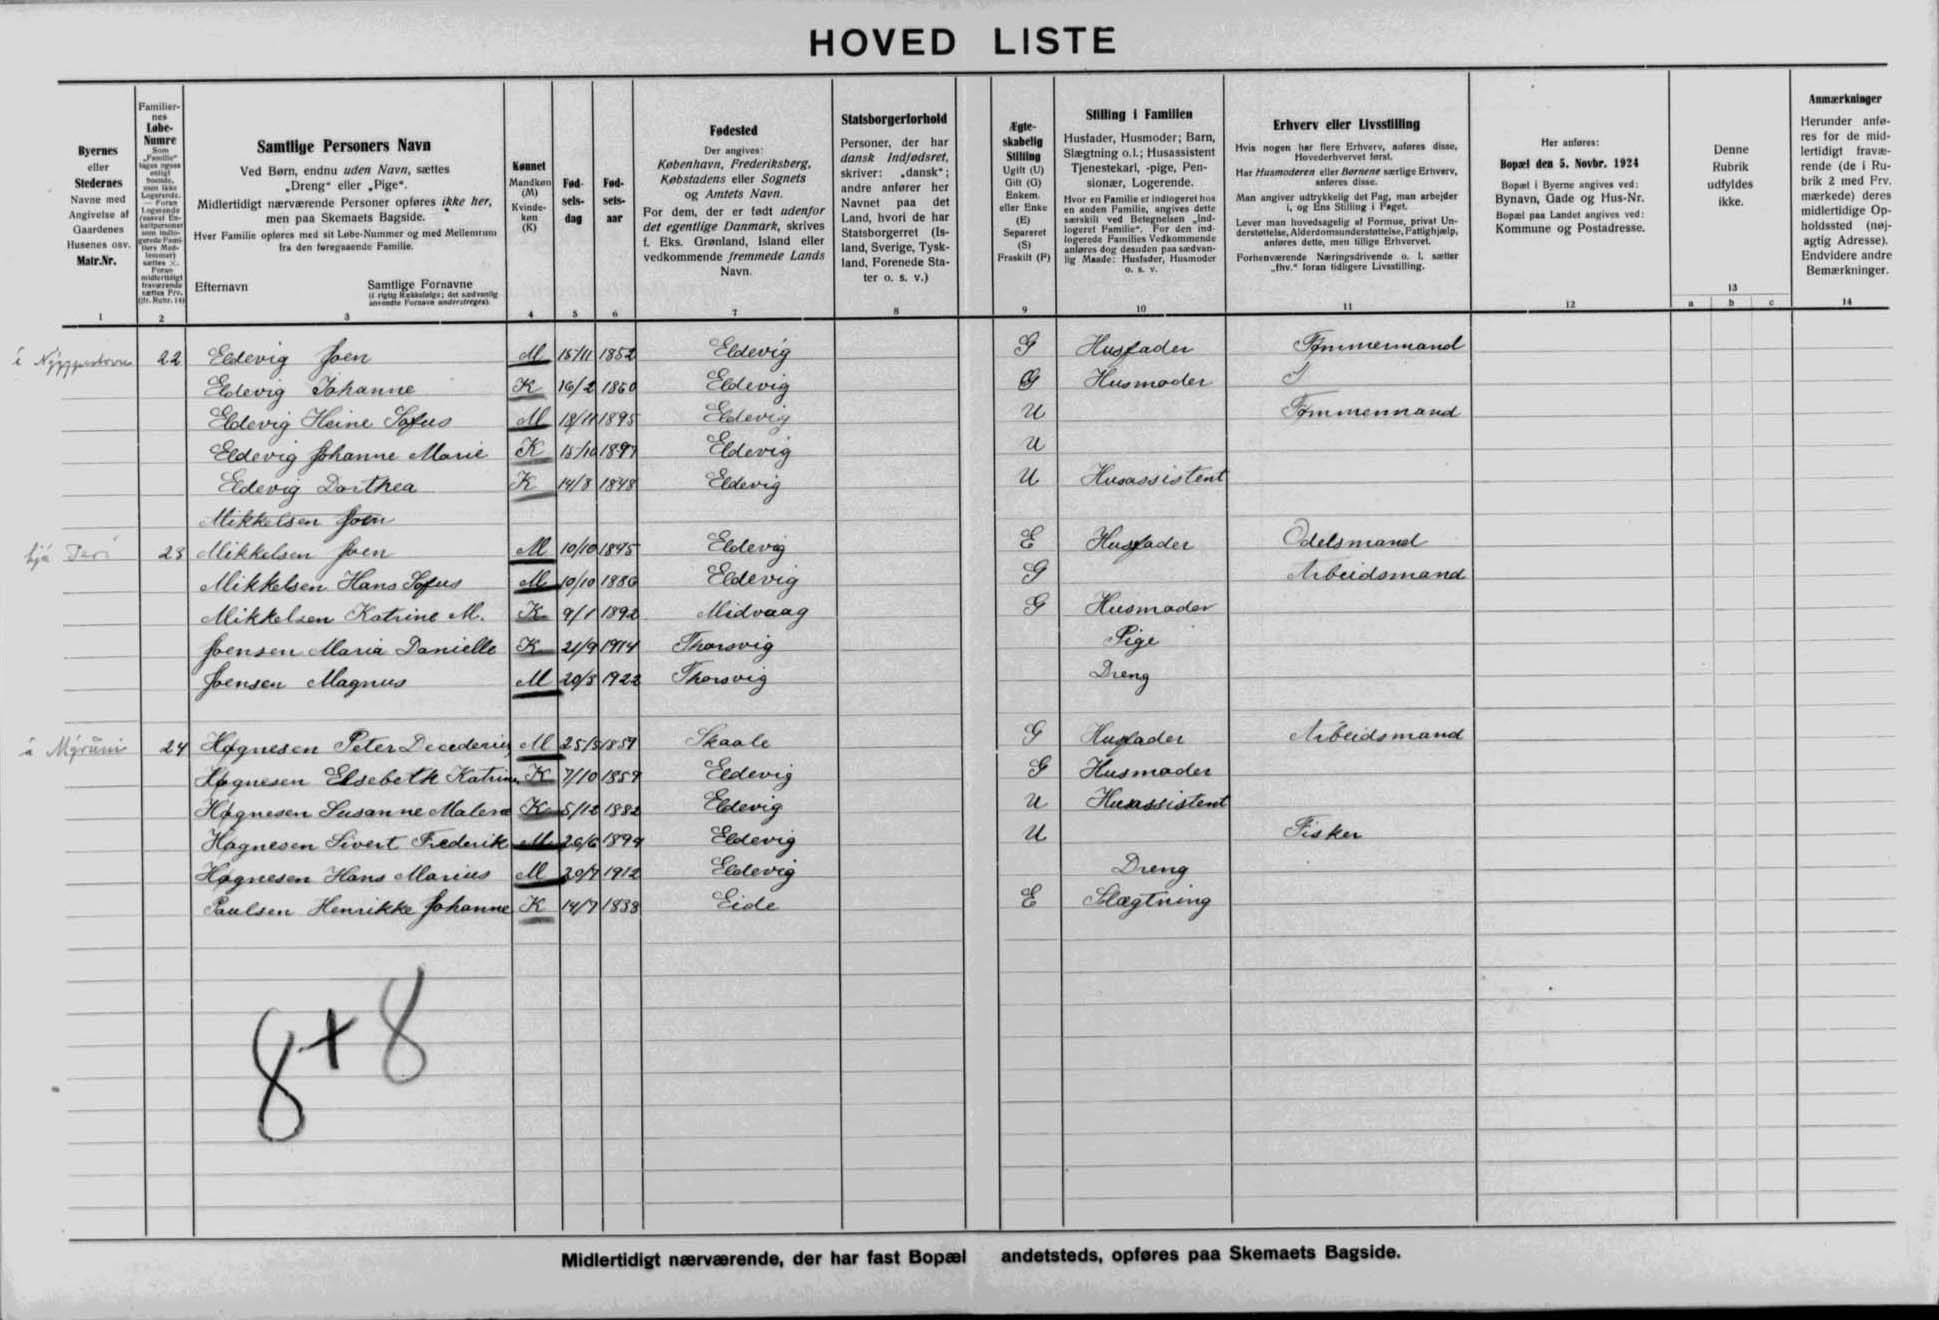 HOVED LISTE
Byernes
eller
Stedernes
Navne med
Angivelse af
Gaardenes
Husenes osv.
Matr.Nr.
1
Familier-
nes
Løbe-
Numre
Som
„Familie“
tages ogsaa
enligt
boende,
men ikke
Logerende.
— Foran
Logerende
sættes ×.
Foran
midlertidigt
fraværende
sættes Frv.
(jfr. Rubr. 14)
2
Samtlige Personers Navn
Ved Børn, endnu uden Navn, sættes
„Dreng“ eller „Pige“.
Midlertidigt nærværende Personer opføres ikke her,
men paa Skemaets Bagside.
Hver Familie opføres med sit Løbe-Nummer og med Mellemrum
fra den foregaaende Familie.
Efternavn
Samtlige Fornavne
(i rigtig Rækkefølge; det sædvanlig
anvendte Fornavn understreges).
3
Kønnet
Mandkøn
(M)
Kvinde-
køn
(K)
4
Fød-
sels-
dag
5
Fød-
sels-
aar
6
Fødested
Der angives:
København, Frederiksberg,
Købstadens eller Sognets
og Amtets Navn.
For dem, der er født udenfor
det egentlige Danmark, skrives
f. Eks. Grønland, Island eller
vedkommende fremmede Lands
Navn.
7
Statsborgerforhold
Personer, der har
dansk Indfødsret,
skriver: „dansk“;
andre anfører her
Navnet paa det
Land, hvori de har
Statsborgerret (Is-
land, Sverige, Tysk-
land, Forenede Sta-
ter o. s. v.)
8
Ægte-
skabelig
Stilling
Ugift (U)
Gift (G)
Enkem.
eller Enke
(E)
Separeret
(S)
Fraskilt (F)
9
Stilling i Familien
Husfader, Husmoder; Barn,
Slægtning o.l.; Husassistent
Tjenestekarl, -pige, Pen-
sionær, Logerende.
Hvor en Familie er indlogeret hos
en anden Familie, angives dette
særskilt ved Betegnelsen „Ind-
logeret Familie“. For den ind-
logerede Families Vedkommende
anføres dog desuden paa sædvan-
lig Maade: Husfader, Husmoder
o. s. v.
10
Erhverv eller Livsstilling
Hvis nogen har flere Erhverv, anføres disse,
Hovederhvervet først.
Har Husmoderen eller Børnene særlige Erhverv,
anføres disse.
Man angiver udtrykkelig det Fag, man arbejder
i, og Ens Stilling i Faget.
Lever man hovedsagelig af Formue, privat Un-
derstøttelse, Alderdomsunderstøttelse, Fattighjælp,
anføres dette, men tillige Erhvervet.
Forhenværende Næringsdrivende o. l. sætter
„fhv.“ foran tidligere Livsstilling.
11
Her anføres:
Bopæl den 5. Novbr. 1924
Bopæl i Byerne angives ved:
Bynavn, Gade og Hus-Nr.
Bopæl paa Landet angives ved:
Kommune og Postadresse.
12
Denne
Rubrik
udfyldes
ikke.
13
a b c
Anmærkninger
Herunder anfø-
res for de mid-
lertidigt fravæ-
rende (de i Ru-
brik 2 med Frv.
mærkede) deres
midlertidige Op-
holdssted (nøj-
agtig Adresse).
Endvidere andre
Bemærkninger.
14
22 Eldevig Joen M 15/11 1852 Eldevig G Husfader Tømmermand
Eldevig Johanne K 16/2 1860 Eldevig G Husmoder
Eldevig Heine Sofus M 18/11 1895 Eldevig U Tømmermand
Eldevig Johanne Marie K 15/10 1897 Eldevig U
Eldevig Dorthea K 14/8 1848 Eldevig U Husassistent
Mikkelsen Joen
hjá 23 Mikkelsen Joen M 10/10 1845 Eldevig E Husfader Odelsmand
Mikkelsen Hans Sofus M 10/10 1886 Eldevig G Arbeidsmand
Mikkelsen Katrine M. K 9/1 1892 Midvaag G Husmoder
Joensen Maria Danielle K 21/9 1914 Thorsvig Pige
Joensen Magnus M 20/5 1922 Thorsvig Dreng
á Mýruni 24 Høgnesen Peter M 25/5 1859 Skaale G Husfader Arbeidsmand
Høgnesen Elsebeth Katrine K 7/10 1859 Eldevig G Husmoder
Høgnesen Susanne Malene K 5/12 1882 Eldevig U Husassistent
Høgnesen Sivert Frederik M 26/6 1894 Eldevig U Fisker
Høgnesen Hans Marius M 20/7 1912 Eldevig Dreng
Paulsen Henrikke Johanne K 14/7 1838 Eide E Slægtning
8+8
Midlertidigt nærværende, der har fast Bopæl andetsteds, opføres paa Skemaets Bagside.